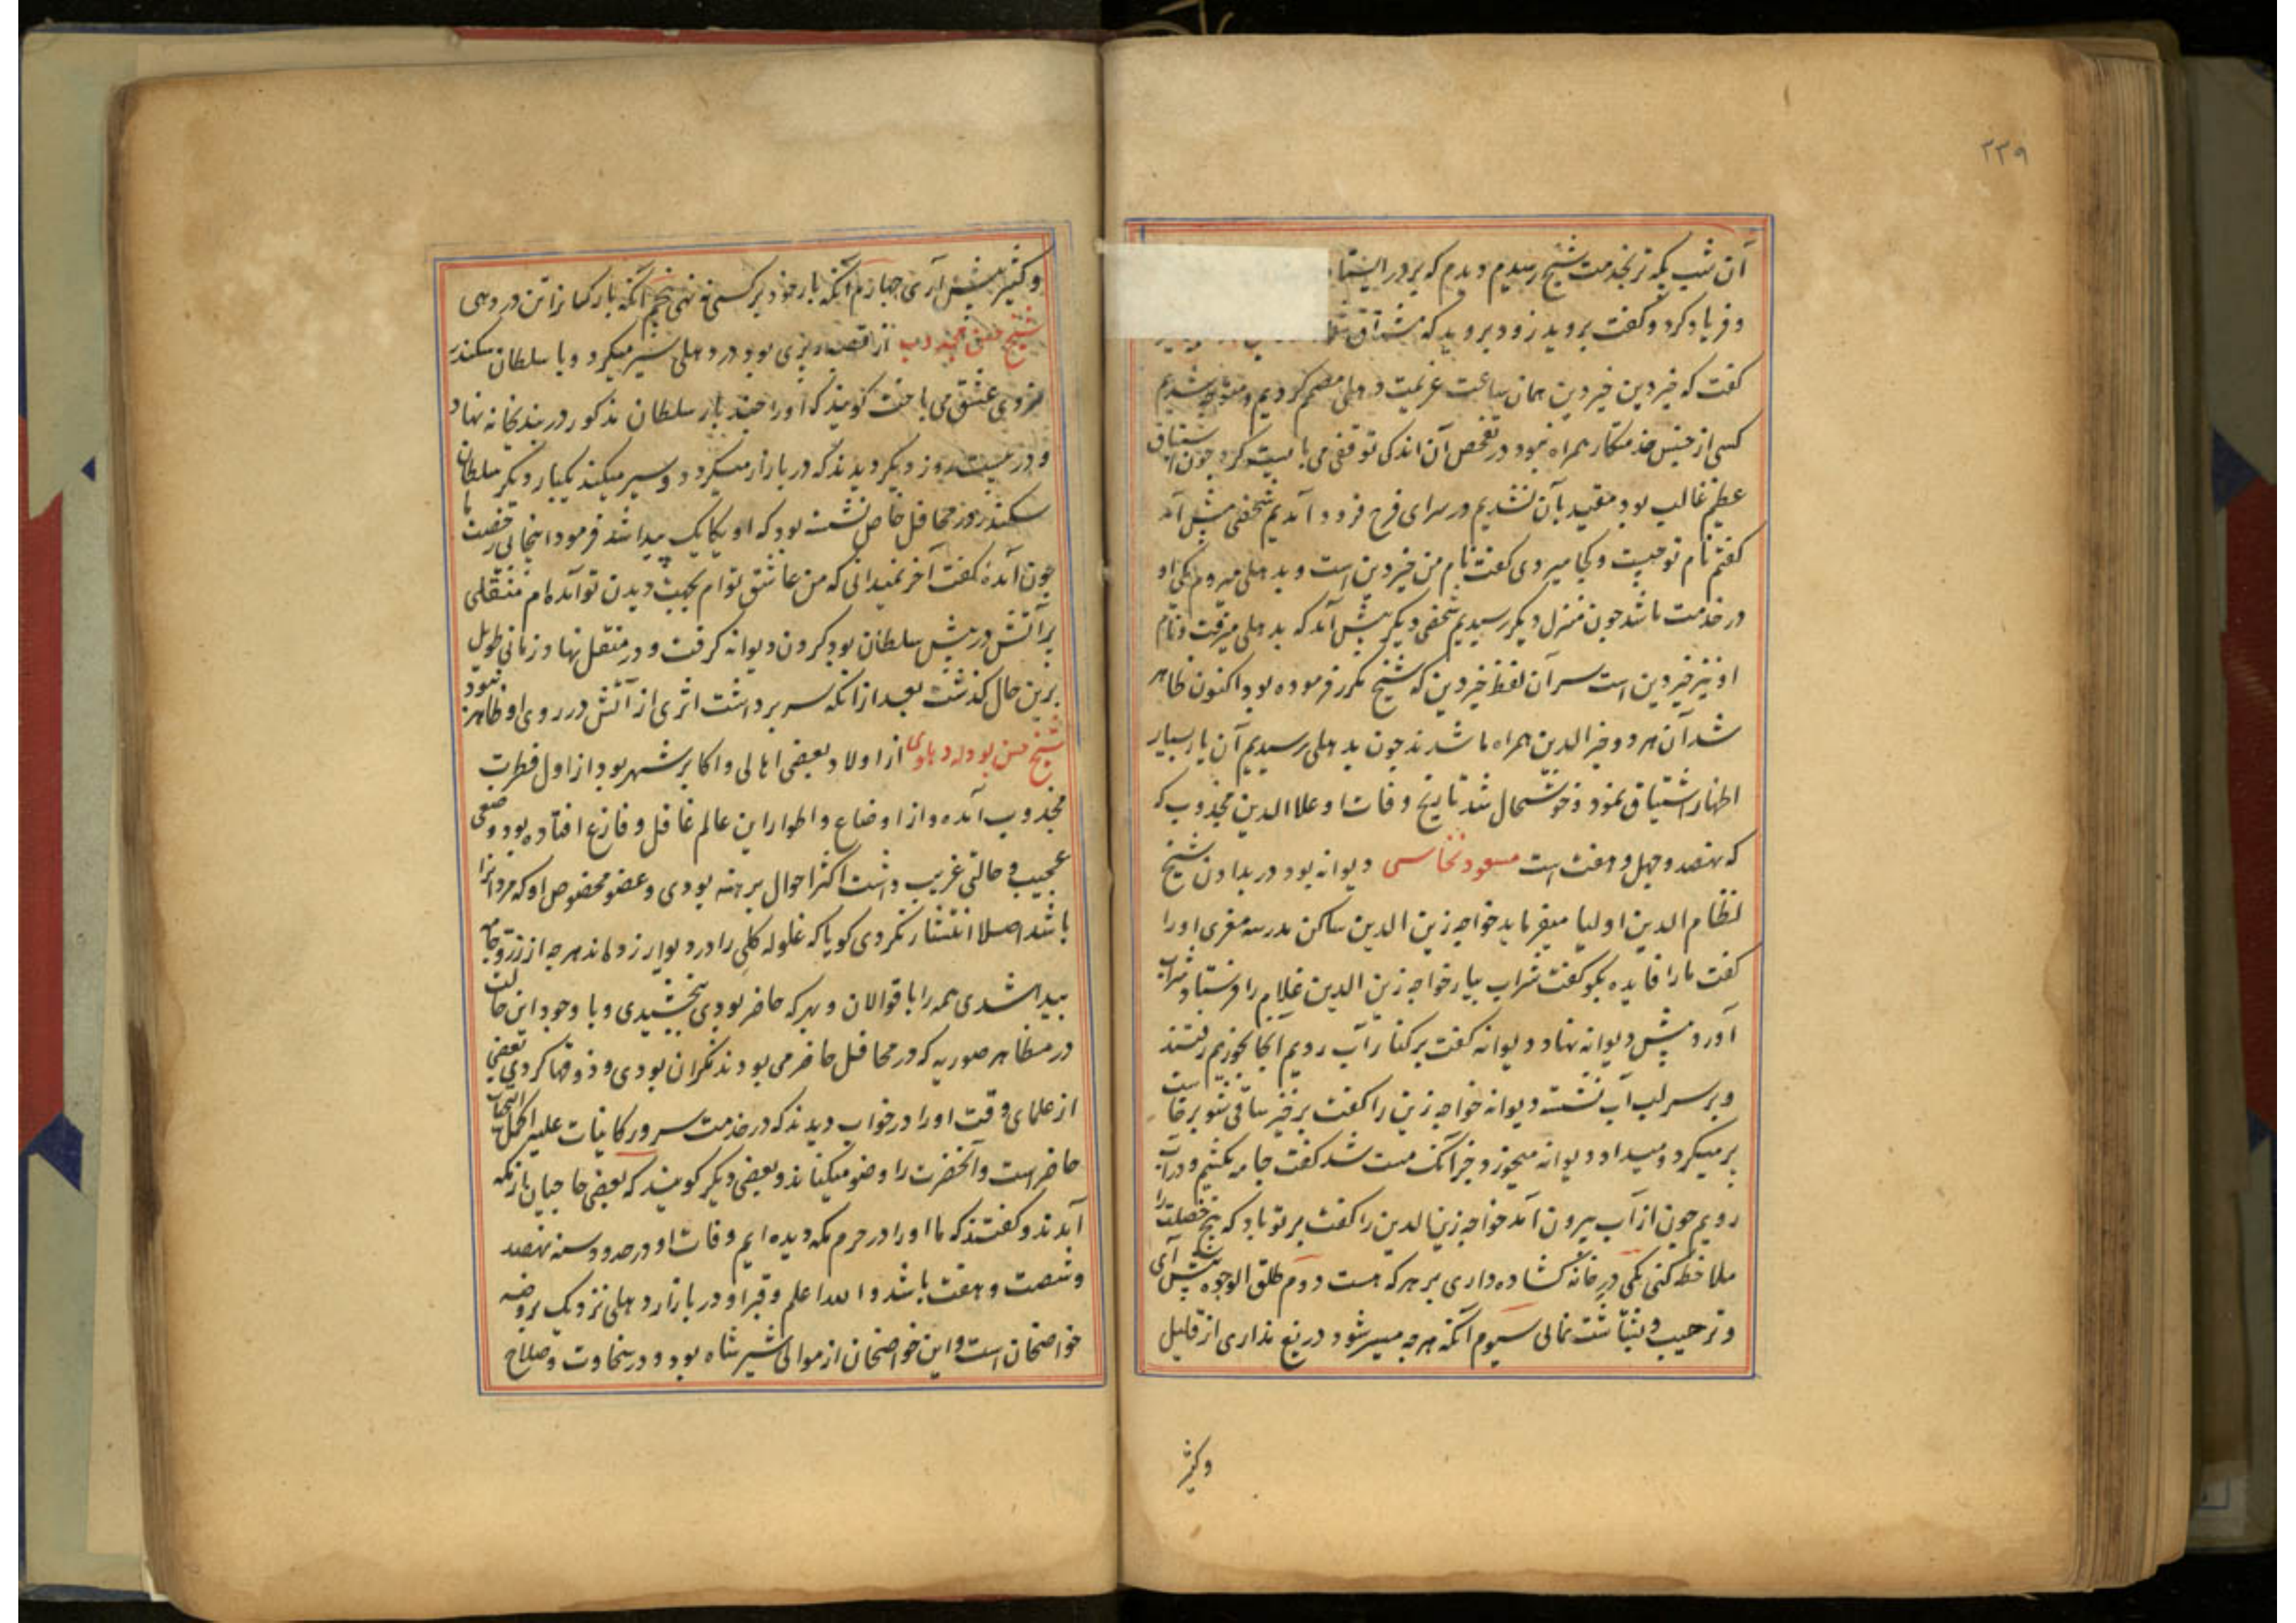 ۳۳۹
آن شب که بخدمت شیخ رسیدم دیدم که بر در ایستا
و فریاد کرد و گفت بروید زود بروید که مشتاق شما
گفت که خیر دین خیر دین همان ساعت عزیمت دهلی مصمم کردیم و متوجه شدیم
کسی از جنس خدمتکار همراه نبود در تفحص آن اندکی توقف می بایست کرد چون اشتیاق
عظیم غالب بود مقید بآن نشدیم در سرای فرح فرود آمدیم شخصی پیش آمد
گفتم نام تو چیست و کجا میروی گفت نام من خیر دین است و بدهلی میروم یکی او
در خدمت ما شد چون منزل دیگر رسیدیم شخصی دیگر پیش آمد که بدهلی میرفت و نام
او نیز خیر دین است سر آن لفظ خیر دین که شیخ مکرر فرموده بود اکنون ظاهر
شد آن هر دو خیر الدین همراه ما شدند چون بدهلی رسیدیم آن یار بسیار
اظهار اشتیاق نمود و خوشحال شد تاریخ وفات او علاالدین مجذوب که
که نهصد و چهل و هفت است مسعود نخاسی دیوانه بود در بداون شیخ
نظام الدین اولیا میفرماید خواجه زین الدین ساکن مدرسه معزی او را
گفت ما را فایده بگو گفت شراب بیار خواجه زین الدین غلام را فرستاد شراب
آورد پیش دیوانه نهاد دیوانه گفت بر کنار آب رویم آنجا بخوریم رفتند
و بر سر لب آب نشستند دیوانه خواجه زین را گفت برخیز ساقی شو برخاست
پر میکرد و میداد و دیوانه میخورد خبر آنک مست شد گفت جامه بکشیم و در آب
رویم چون از آب بیرون آمد خواجه زین الدین را گفت بر تو باد که پنج خصلت را
ملاحظه کنی یکی در خانه کشاده داری بر هر که هست دوم طلق الوجوه پیش آی
و ترحیب و بشاشت نمائی سیوم آنکه هرچه میسر شود دریغ نداری از قلیل
وکثیر
و کثیر پیش آری چهارم آنکه بار خود بر کسی ننهی پنجم آنکه بار کسانرا تن در دهی
شیخ حسن مجذوب از قصبه رپری بود در دهلی سیر میکرد و با سلطان سکندر
عشق می باخت گویند که او را چند بار سلطان مذکور در بندیخانه نهاد
و در بیست روز دیگر دیدند که در بازار میکردد و سیر میکند یکبار دیگر سلطان
سکندر در محافل خاص نشسته بود که او یکایک پیدا شد فرمود اینجا بی رخصت ما
چون آمدهٔ گفت آخر نمیدانی که من عاشق توام بجهت دیدن تو آمده ام منقلی
پر آتش در پیش سلطان بود گردن دیوانه گرفت و در منقل نهاد زمانی طویل
برین حال گذشت بعد از آنکه سر برداشت اثری از آتش در روی او ظاهر نبود
شیخ حسن بودله دهلوی از اولاد بعضی اهالی و اکابر شهر بود از اول فطرت
مجذوب آمده و از اوضاع و اطوار این عالم غافل و فارغ افتاده بود وضعی
عجیب و حالتی غریب داشت اکثر احوال برهنه بودی و عضو مخصوص او که مردانرا
باشد اصلا انتشار نکردی گویا که غلوله کلی را در دیوار زده اند هرچه از زر و جامه
پیدا شدی همه را با قوالان و بهر که حاضر بودی بخشیدی و با وجود این حالت
در مظاهر صوریه که در محافل حاضر می بودند نگران بودی و ذوقها کردی بعضی
از علمای وقت او را در خواب دیدند که در خدمت سرور کاینات علیه اکمل التحیات
حاضر است و آنحضرت را وضو میکنانند و بعضی دیگر گویند که بعضی حاجیان از مکه
آمدند و گفتند که ما او را در حرم مکه دیده ایم وفات او در حدود سنه نهصد
و شصت و هفت باشد والله اعلم و قبر او در بازار دهلی نزدیک بروضه
خواصخان است و این خواصخان از موالی شیر شاه بود و در سخاوت و صلاح